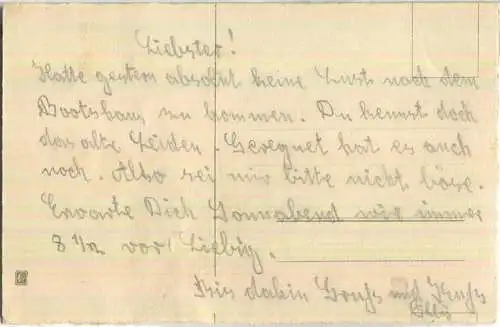 Liebster!
Hatte gestern absolut keine Lust nach dem
Bootshaus zu kommen. Du kennst doch
das alte Leiden. Geregnet hat es auch
noch. Also sei mir bitte nicht böse.
Erwarte Dich Sonnabend wie immer
8 1/2 vor Liebig.
Bis dahin Gruß und Kuß